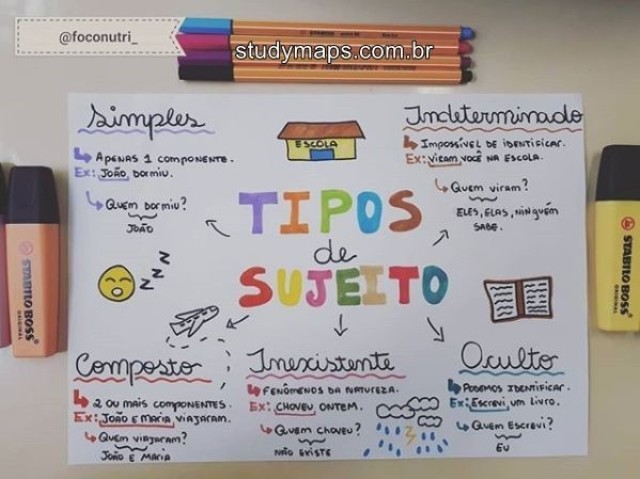 @foconutri_
studymaps.com.br
Simples
Apenas 1 componente.
Ex: João dormiu.
Quem dormiu?
João
Indeterminado
Impossível de identificar.
Ex: viram você na escola.
Quem viram?
Eles, elas, ninguém
sabe.
ESCOLA
TIPOS
de
SUJEITO
z z z
Composto
2 ou mais componentes.
Ex: João e Maria viajaram.
Quem viajaram?
João e Maria
Inexistente
Fenômenos da natureza.
Ex: Choveu ontem.
Quem choveu?
Não existe
Oculto
Podemos identificar.
Ex: Escrevi um livro.
Quem escrevi?
Eu
STABILO BOSS
ORIGINAL
STABILO BOSS
ORIGINAL